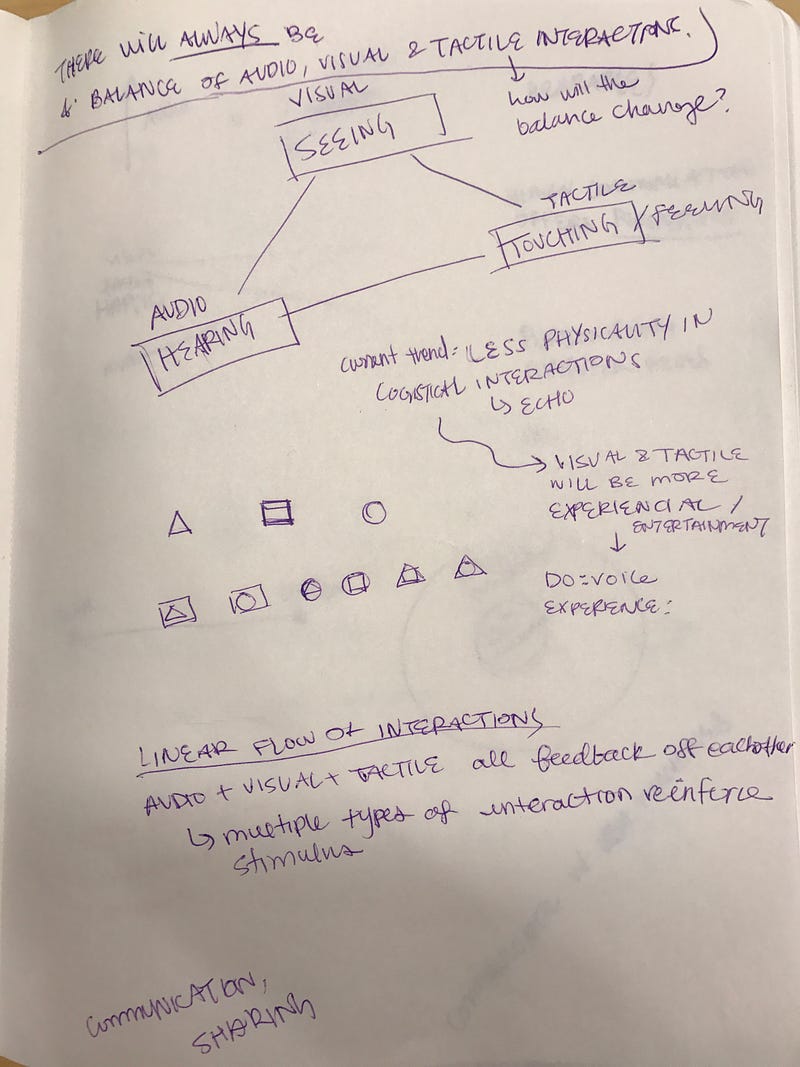 THERE WILL ALWAYS BE
BALANCE OF AUDIO, VISUAL & TACTILE INTERACTIONS.
how will the
balance change?
VISUAL
SEEING
TACTILE
TOUCHING/FEELING
AUDIO
HEARING
current trend: LESS PHYSICALITY IN
LOGISTICAL INTERACTIONS
↳ ECHO
→ VISUAL & TACTILE
WILL BE MORE
EXPERIENCIAL /
ENTERTAINMENT
↓
DO: VOICE
EXPERIENCE:
LINEAR FLOW OF INTERACTIONS
AUDIO + VISUAL + TACTILE all feedback off eachother
↳ multiple types of interaction reinforce
stimulus
COMMUNICATION,
SHARING